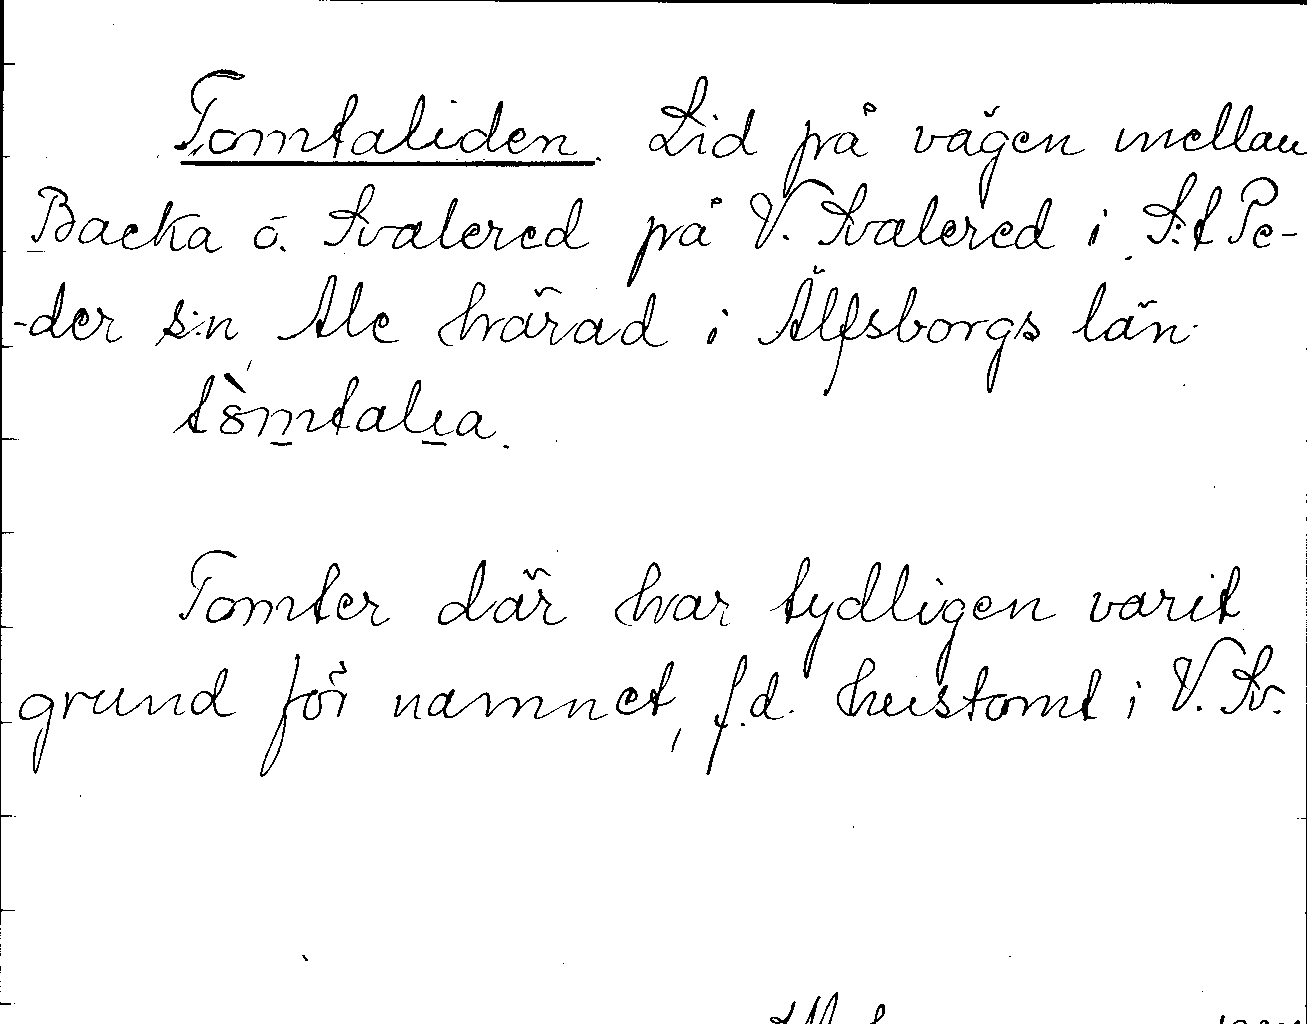 Tomtaliden. Lid på vägen mellan
Backa o. Svalered på V. Svalered i S:t Pe-
-der s:n, Ale härad i Älfsborgs län.
tòmtalıa.
Tomter där har tydligen varit
grund för namnet, f.d. hustomt i V. Sv.